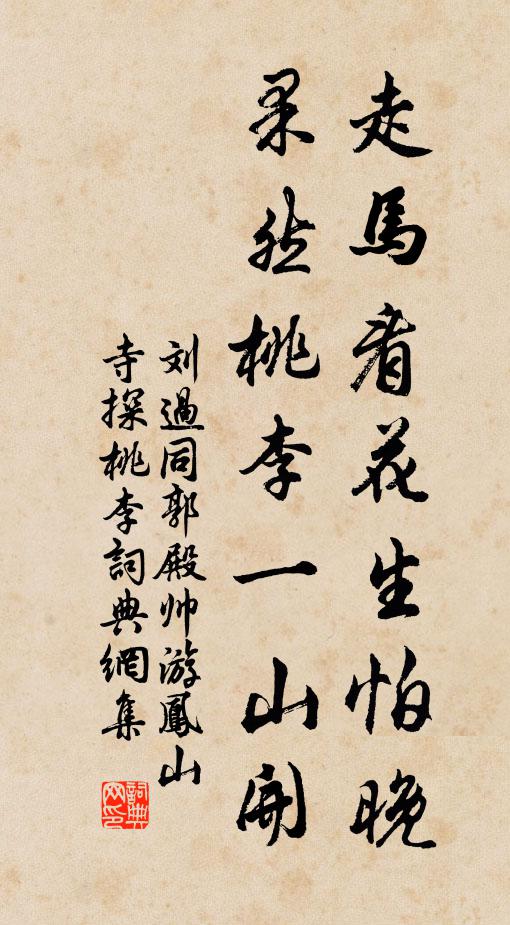 走馬看花生怕晚
果然桃李一山開
刘過同郭殿帅游鳳山
寺探桃李詞典網集
詞典
网印